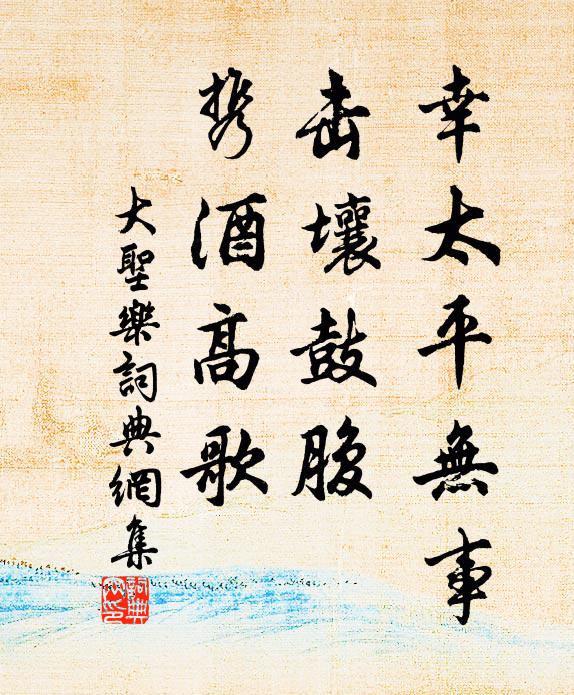 幸太平無事
击壤鼓腹
携酒高歌
大聖樂詞典網集